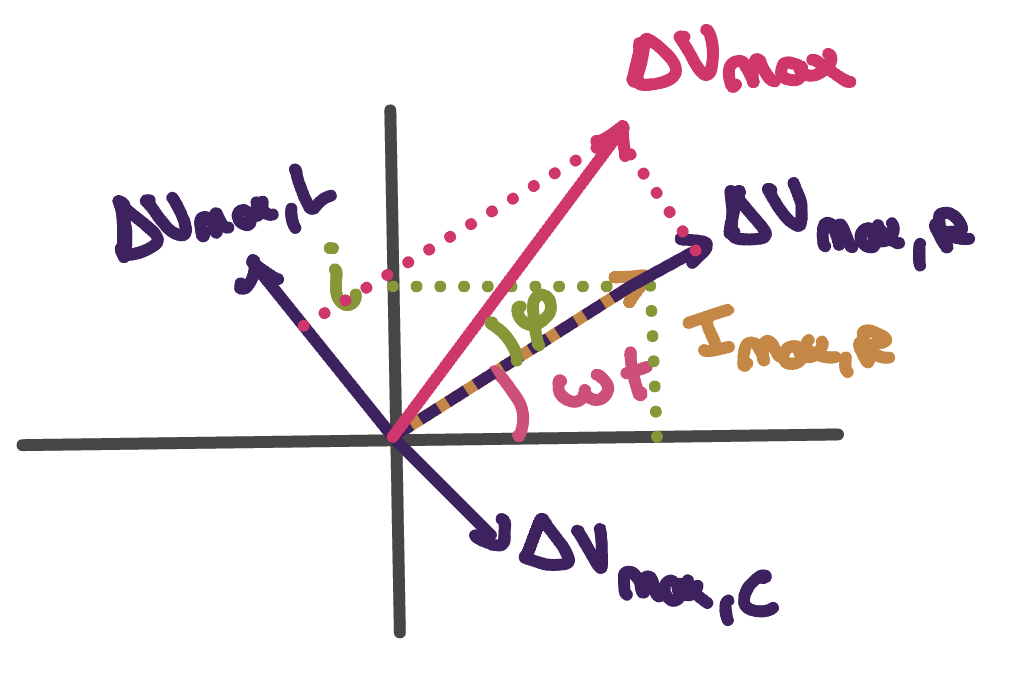 ΔVmax
ΔVmax,L
ΔVmax,R
i
φ
Imax,R
ωt
ΔVmax,C